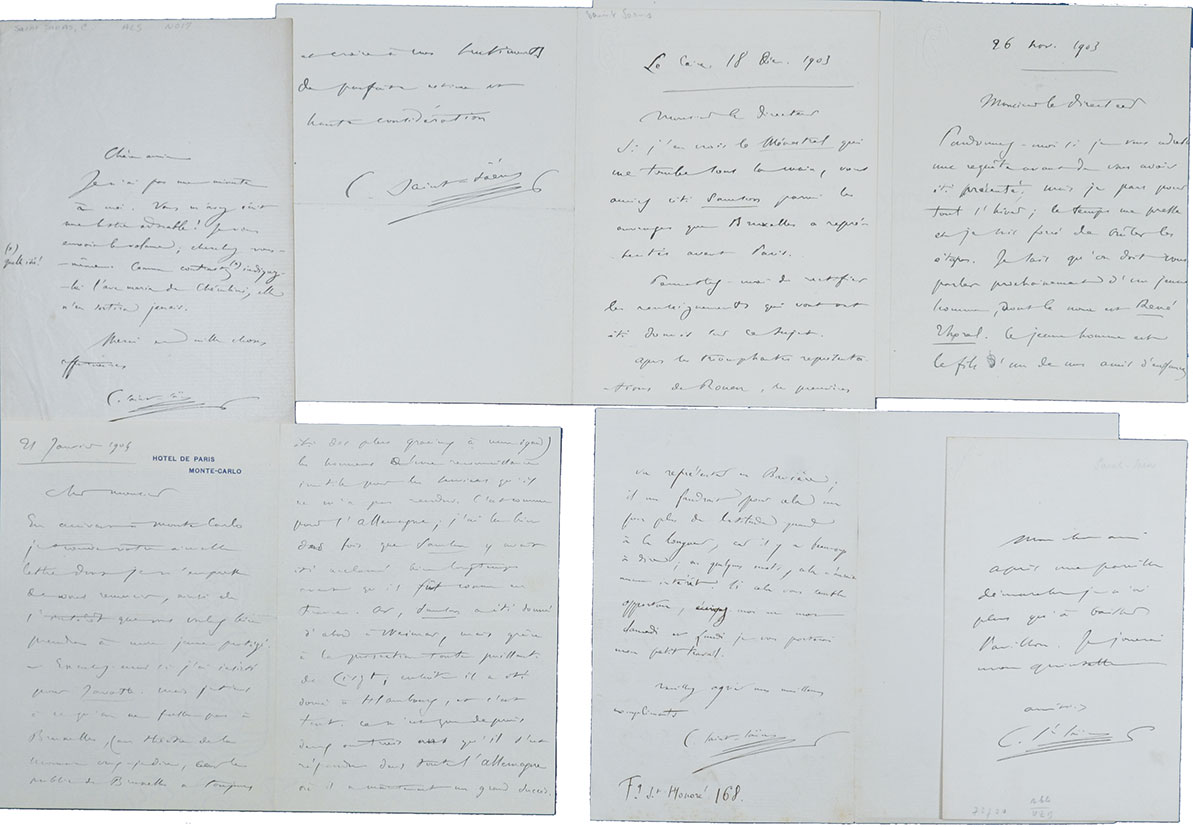 Saint Saëns, C. ALS
Cher ami
Je n'ai pas une minute
à moi. Vous m'avez écrit
une lettre adorable ! Je vous
envoie le volume, cherchez vous-
même comme contraste (1)
l'ave maria de Cherubini, elle
n'en sortira jamais.
(1)
quelle idée!
Merci et mille choses
affectueuses
C. Saint-Saëns
et croire à mes sentiments
de parfaite estime et
haute considération
C. Saint-Saëns
Saint Saens
Le Caire, 18 Déc. 1903
Monsieur le directeur
Si j'en crois le Ménestrel qui
me tombe sous la main, vous
auriez cité Samson parmi les
ouvrages que Bruxelles a représ-
tentés avant Paris.
Permettez-moi de rectifier
les renseignements qui vous ont
été donnés sur ce sujet.
Après les triomphantes représenta-
tions de Rouen, les premières
26 nov. 1903
Monsieur le directeur
Pardonnez-moi si je vous adresse
une requête avant de vous avoir
été présenté, mais je pars pour
tout l'hiver ; le temps me presse
et je suis forcé de brûler les
étapes. Je sais qu'on doit vous
parler prochainement d'un jeune
homme, dont le nom est René
Thoral. Ce jeune homme est
le fils d'un de mes amis d'enfance
21 Janvier 1904
HOTEL DE PARIS
MONTE-CARLO
Cher monsieur
En arrivant à Monte Carlo
je trouve votre aimable
lettre dont je m'empresse
de vous remercier, ainsi de
l' que vous voulez bien
prendre à mon jeune protégé
Excusez-moi si j'ai insisté
pour mais je tiens
à ce qu'on ne fasse pas à
Bruxelles, (au théâtre de la
Monnaie veux-je dire, car le
public de Bruxelles a toujours
été des plus gracieux à mon égard)
les honneurs d'une reconnaissance
inutile pour les services qu'il
ne m'a pas rendus. C'est comme
pour l'Allemagne ; j'ai lu bien
des fois que Samson y avait
été acclamé bien longtemps
avant qu'il fût connu en
France. Or, Samson a été donné
d'abord à Weimar, mais grâce
à la protection toute puissante
de Liszt ; ensuite il a été
donné à Hambourg, et c'est
tout. Ce n'est que depuis
deux ou trois ans qu'il s'est
répandu dans toute l'Allemagne
où il a maintenant un grand succès.
vu représenter en Bavière ;
il me faudrait pour cela un
peu plus de latitude quant
à la longueur, car il y a beaucoup
à dire ; en quelques mots, cela n'aurait
aucun intérêt. Si cela vous semble
opportun, écrivez moi un mot
Samedi et Lundi je vous porterai
mon petit travail.
Veuillez agréer mes meilleurs
compliments
C. Saint-Saëns
Fg St Honoré 168.
Saint-Saens
Mon cher ami
après une pareille
démarche je n'ai
plus qu'à baisser
Pavillon. Je jouerai
mon quintette
amitiés
C. St Saëns